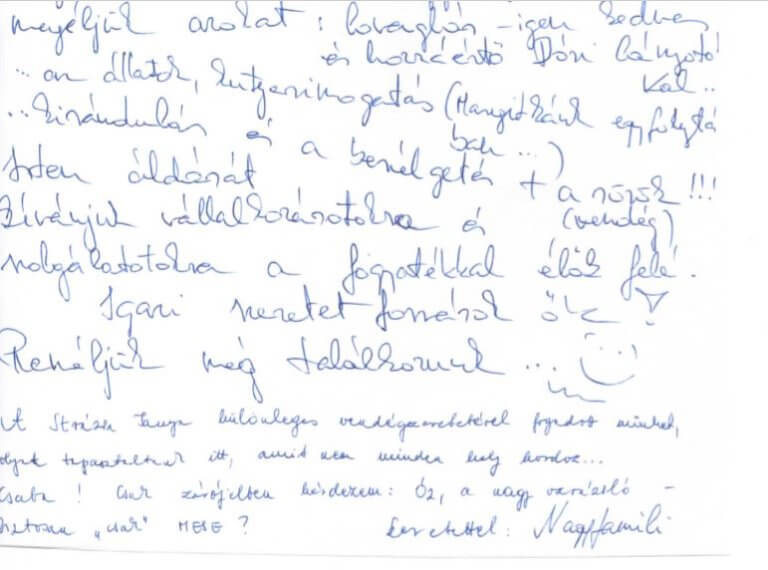 megéljük azokat: lovaglás – igen kedves
és hozzáértő Dóri lányotó
kal..
... an állatok, kutyasimogatás (Mangitkánk egyfolytá
ban ...)
..kirándulás és a beszélgetés + a sörök!!!
Isten áldását (vendég)
kívánjuk vállalkozásotokra és
szolgálatotokra a fogyatékkal élők felé.
Igazi szeretetforrások ők!
Reméljük még találkozunk ...
A Strázsa Tanya különleges vendégszeretetével fogadott minket,
olyat tapasztaltunk itt, amit nem minden hely hordoz...
Csaba! Csak zárójelben kérdezem: Óz, a nagy varázsló –
biztosan „csak" MESE?
Szeretettel: Nagyfamili